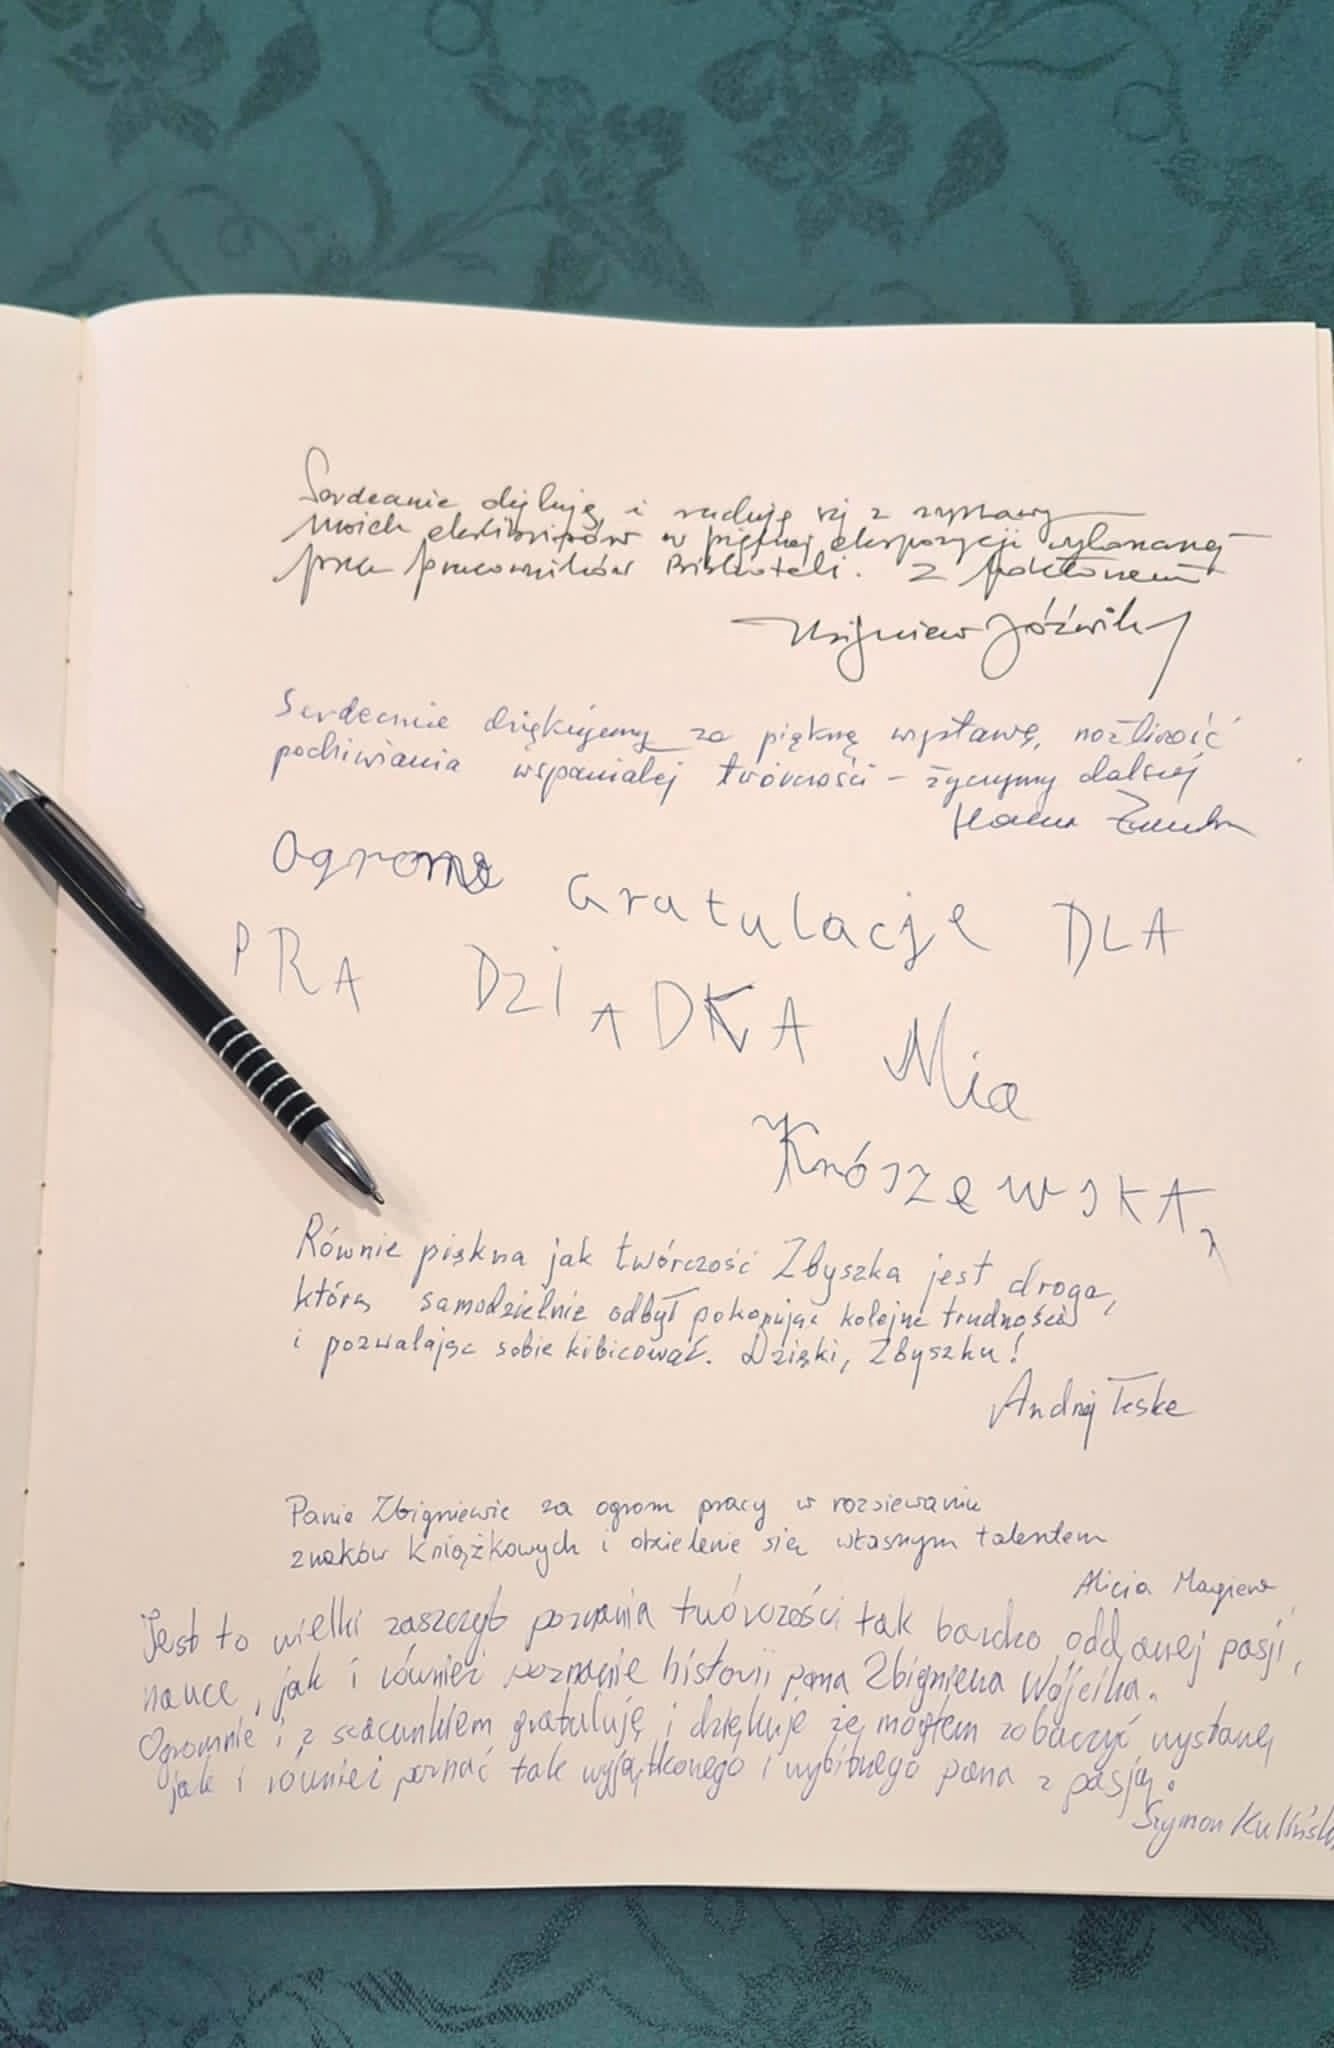 Serdecznie dziękuję i raduję się z wystawy
moich ekslibrisów w pięknej ekspozycji wykonanej
przez pracowników Biblioteki. Z pokłonem
Zbigniew Jóźwik
Serdecznie dziękujemy za piękną wystawę, możliwość
podziwiania wspaniałej twórczości – życzymy dalszej
Ogromne Gratulacje DLA
PRA DZIADKA Mia
KrószewskA,
Równie piękna jak twórczość Zbyszka jest droga,
którą samodzielnie odbył pokonując kolejne trudności
i pozwalając sobie kibicować. Dzięki, Zbyszku!
Andrzej Teske
Panie Zbigniewie za ogrom pracy w rozsiewaniu
znaków książkowych i dzielenie się własnym talentem
Alicja
Jest to wielki zaszczyt poznania twórczości tak bardzo oddanej pasji,
nauce, jak i również poznanie historii pana Zbigniewa Wójcika.
Ogromnie i z szacunkiem gratuluję i dziękuję że mogłem zobaczyć wystawę
jak i również poznać tak wyjątkowego i wybitnego pana z pasją.
Szymon